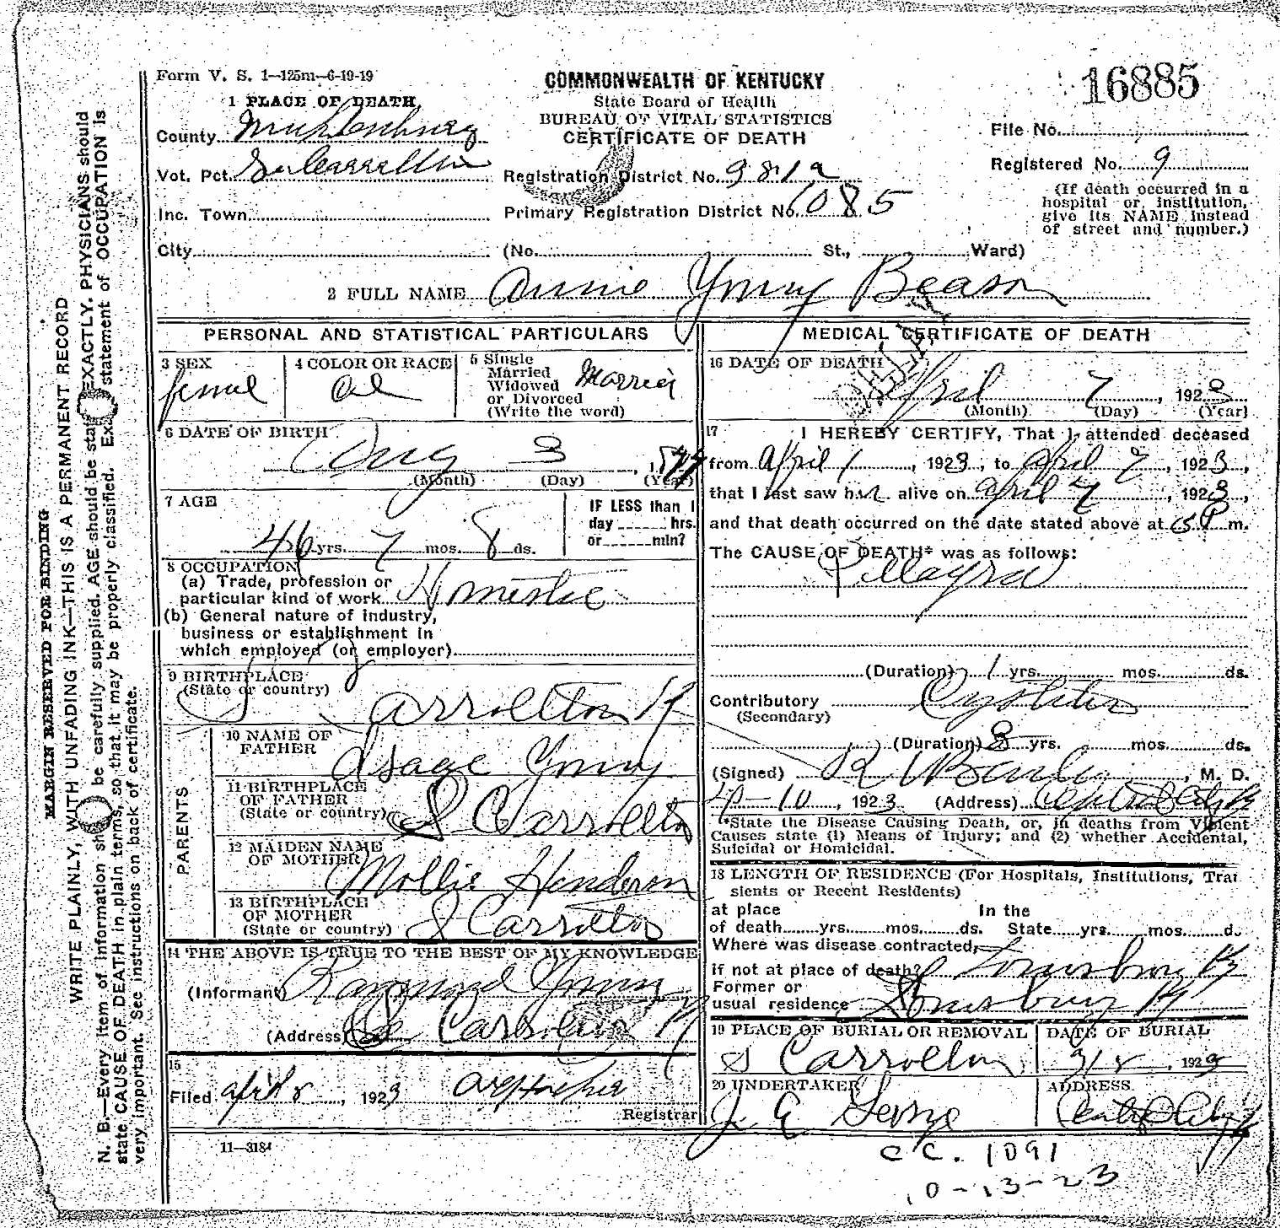 Form V. S. 1—125m—6-19-19
COMMONWEALTH OF KENTUCKY
State Board of Health
BUREAU OF VITAL STATISTICS
CERTIFICATE OF DEATH
16885
1 PLACE OF DEATH
County
Vot. Pct.
Inc. Town
City
(No. St., Ward)
Registration District No.
Primary Registration District No. 1085
File No.
Registered No. 9
(If death occurred in a
hospital or institution,
give its NAME instead
of street and number.)
2 FULL NAME Annie Beason
PERSONAL AND STATISTICAL PARTICULARS
3 SEX
4 COLOR OR RACE
Col
5 Single
Married
Widowed
or Divorced
(Write the word)
Married
6 DATE OF BIRTH
Aug 3
(Month) (Day) (Year)
7 AGE
46 yrs. 7 mos. 8 ds.
IF LESS than 1
day hrs.
or min?
8 OCCUPATION
(a) Trade, profession or
particular kind of work
(b) General nature of industry,
business or establishment in
which employed (or employer)
9 BIRTHPLACE
(State or country)
S Carrollton Ky
PARENTS
10 NAME OF
FATHER
Isaac
11 BIRTHPLACE
OF FATHER
(State or country)
S Carrollton
12 MAIDEN NAME
OF MOTHER
Mollie
13 BIRTHPLACE
OF MOTHER
(State or country)
S Carrollton
14 THE ABOVE IS TRUE TO THE BEST OF MY KNOWLEDGE
(Informant) Raymond
(Address)
15
Filed April 8, 1923
Registrar
11—3184
MEDICAL CERTIFICATE OF DEATH
16 DATE OF DEATH
April 7, 1923
(Month) (Day) (Year)
17 I HEREBY CERTIFY, That I attended deceased
from April 1, 1923, to April 7, 1923,
that I last saw her alive on April 7, 1923,
and that death occurred on the date stated above at m.
The CAUSE OF DEATH* was as follows:
(Duration) 1 yrs. mos. ds.
Contributory
(Secondary)
(Duration) yrs. mos. ds.
(Signed) M. D.
, 1923 (Address) Central City Ky
*State the Disease Causing Death, or, in deaths from Violent
Causes state (1) Means of Injury; and (2) whether Accidental,
Suicidal or Homicidal.
18 LENGTH OF RESIDENCE (For Hospitals, Institutions, Tran
sients or Recent Residents)
at place In the
of death yrs. mos. ds. State yrs. mos. d.
Where was disease contracted,
if not at place of death?
Former or
usual residence
19 PLACE OF BURIAL OR REMOVAL
S Carrollton
DATE OF BURIAL
, 1923
20 UNDERTAKER
J. E.
ADDRESS
Central City Ky
C C. 1091
10-13-23
MARGIN RESERVED FOR BINDING
WRITE PLAINLY, WITH UNFADING INK—THIS IS A PERMANENT RECORD
N. B.—Every item of information should be carefully supplied. AGE should be stated EXACTLY. PHYSICIANS should
state CAUSE OF DEATH in plain terms, so that it may be properly classified. Exact statement of OCCUPATION is
very important. See instructions on back of certificate.